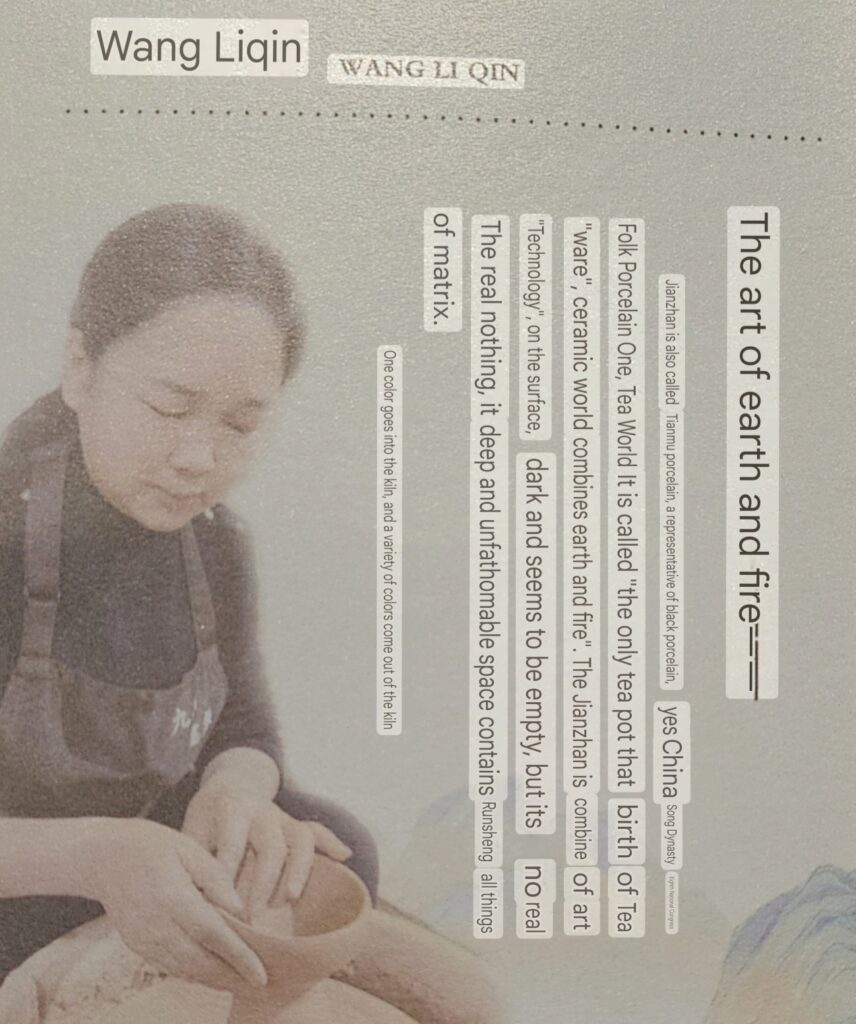 Wang Liqin
WANG LI QIN
The art of earth and fire===
Jianzhan is also called Tianmu porcelain, a representative of black porcelain, yes China Song Dynasty
Folk Porcelain One, Tea World It is called "the only tea pot that birth of Tea
"ware", ceramic world combines earth and fire". The Jianzhan is combine of art
"Technology", on the surface, dark and seems to be empty, but its no real
The real nothing, it deep and unfathomable space contains Runsheng all things
of matrix.
One color goes into the kiln, and a variety of colors come out of the kiln